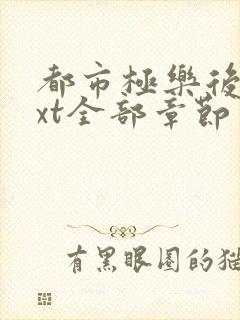 都市極樂後
xt全部章節
有黑眼圈的貓